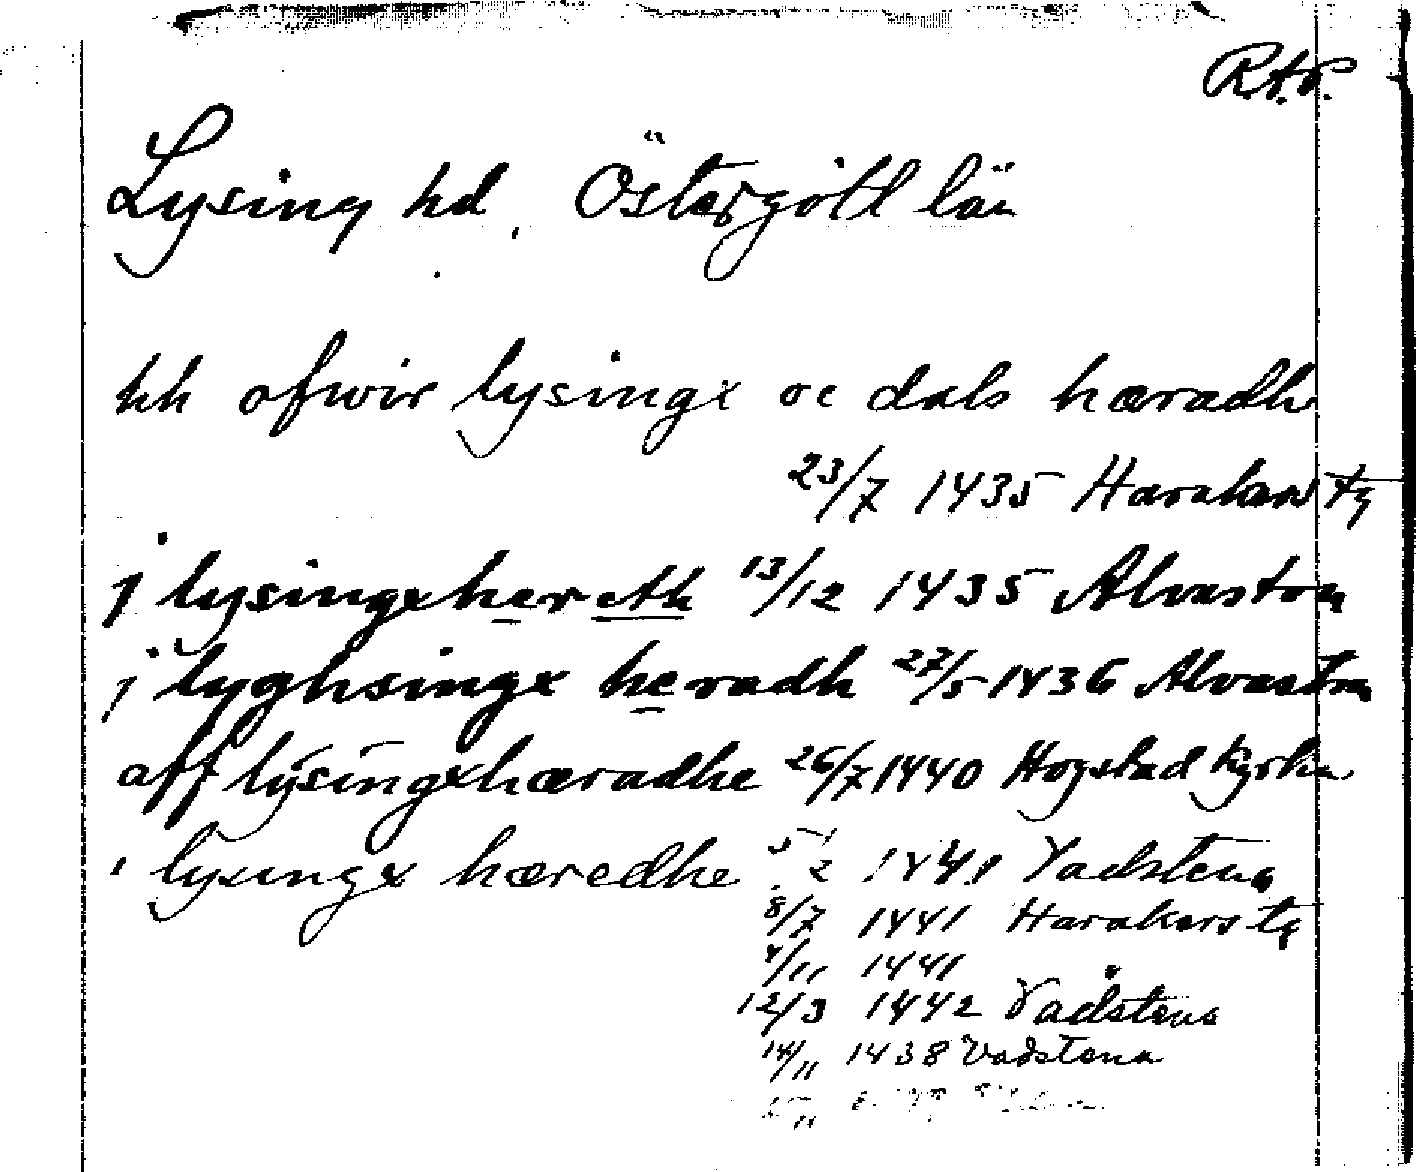 R.A.P.
Lysing hd, Östergötl län
hh ofwir lysingx oc dals hæradh
23/7 1435 Harakers tg
j lysingxhereth 13/12 1435 Alvastra
j lyghsingx heradh 27/5 1436 Alvastra
aff lysingxhæradhe 26/7 1440 Hogstad kyrka
i lysingx hæredhe 5/2 1441 Vadstena
8/7 1441 Harakers tg
4/11 1441
12/3 1442 Vadstena
14/11 1438 Vadstena